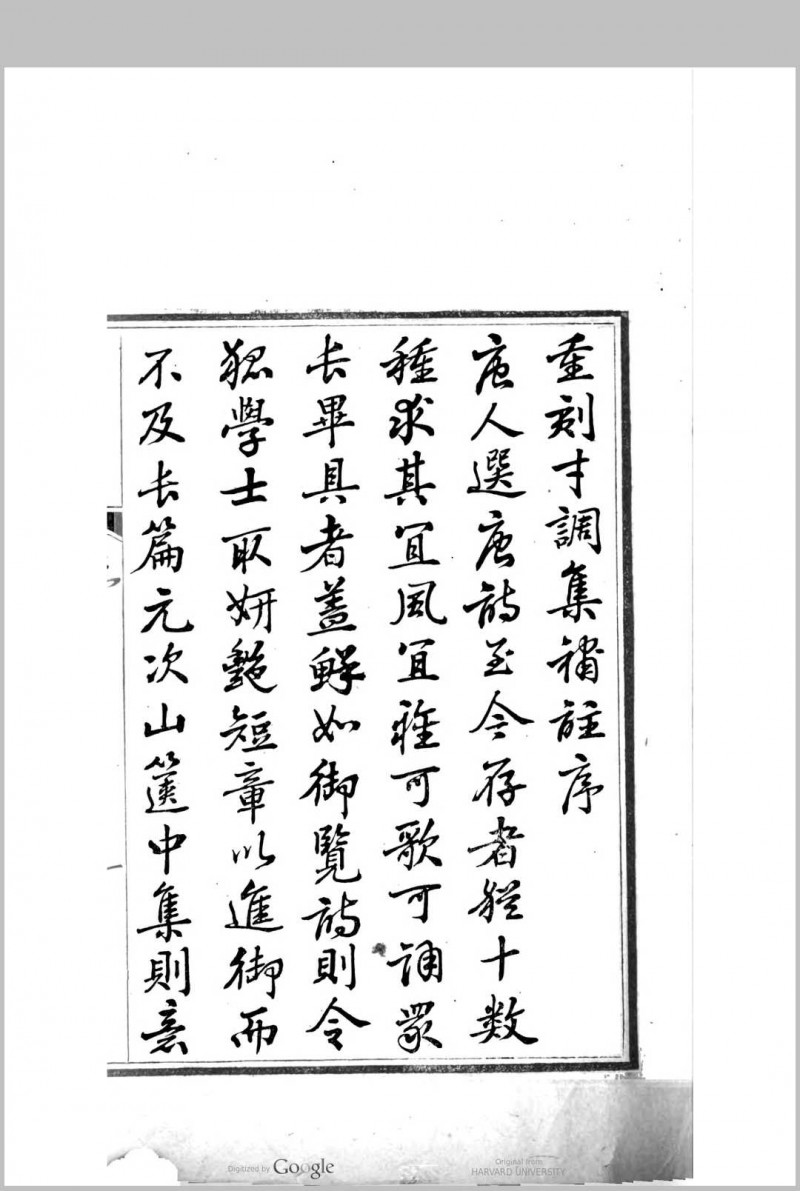 重刻才調集補註序
唐人選唐詩至今存者僅十數
種求其宜風宜雅可歌可誦眾
長畢具者蓋鮮如御覽詩則令
狐學士取妍艷短章以進御而
不及長篇元次山篋中集則意
Digitized by Google
Original from
HARVARD UNIVERSITY